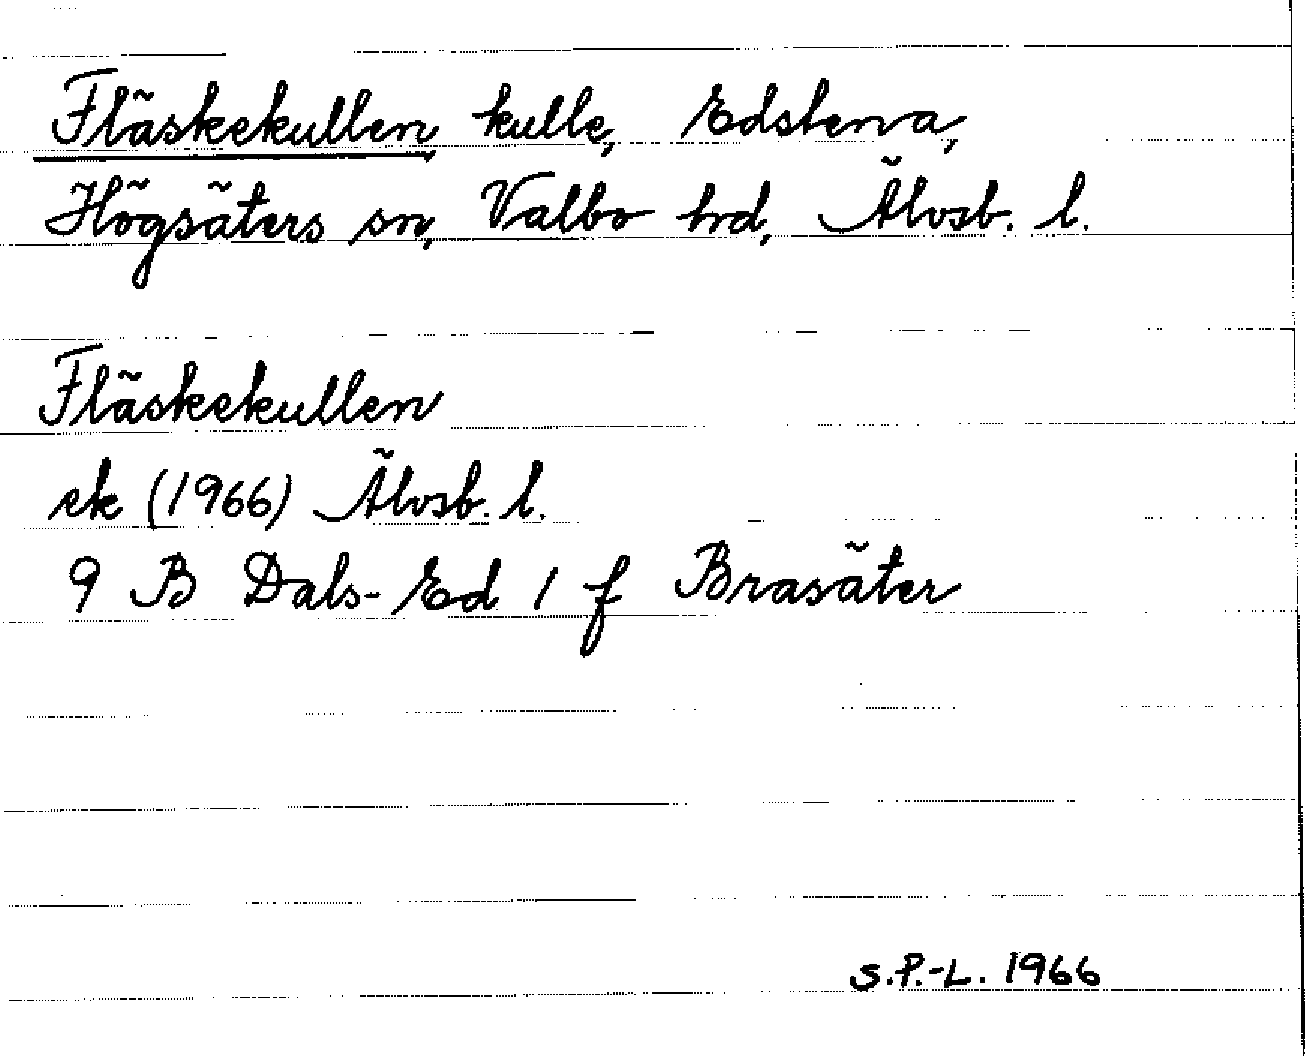 Fläskekullen, kulle, Edstena,
Högsäters sn, Valbo hd, Älvsb. l.
Fläskekullen
ek (1966) Älvsb. l.
9 B Dals-Ed 1 f Brasäter
S.P.-L. 1966